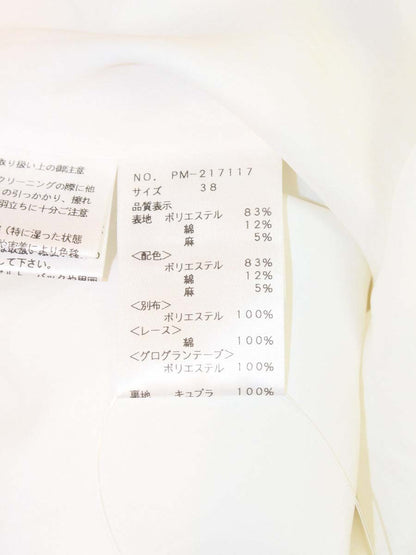 取り扱い上の御注意
クリーニングの際に他
の引っかかり、擦れ
羽立ちに十分ご注意
(特に湿った状態
して下さい。
NO. PM-217117
サイズ 38
品質表示
表地 ポリエステル 83%
綿 12%
麻 5%
<配色>
ポリエステル 83%
綿 12%
麻 5%
<別布>
ポリエステル 100%
<レース>
綿 100%
<グログランテープ>
ポリエステル 100%
裏地 キュプラ 100%